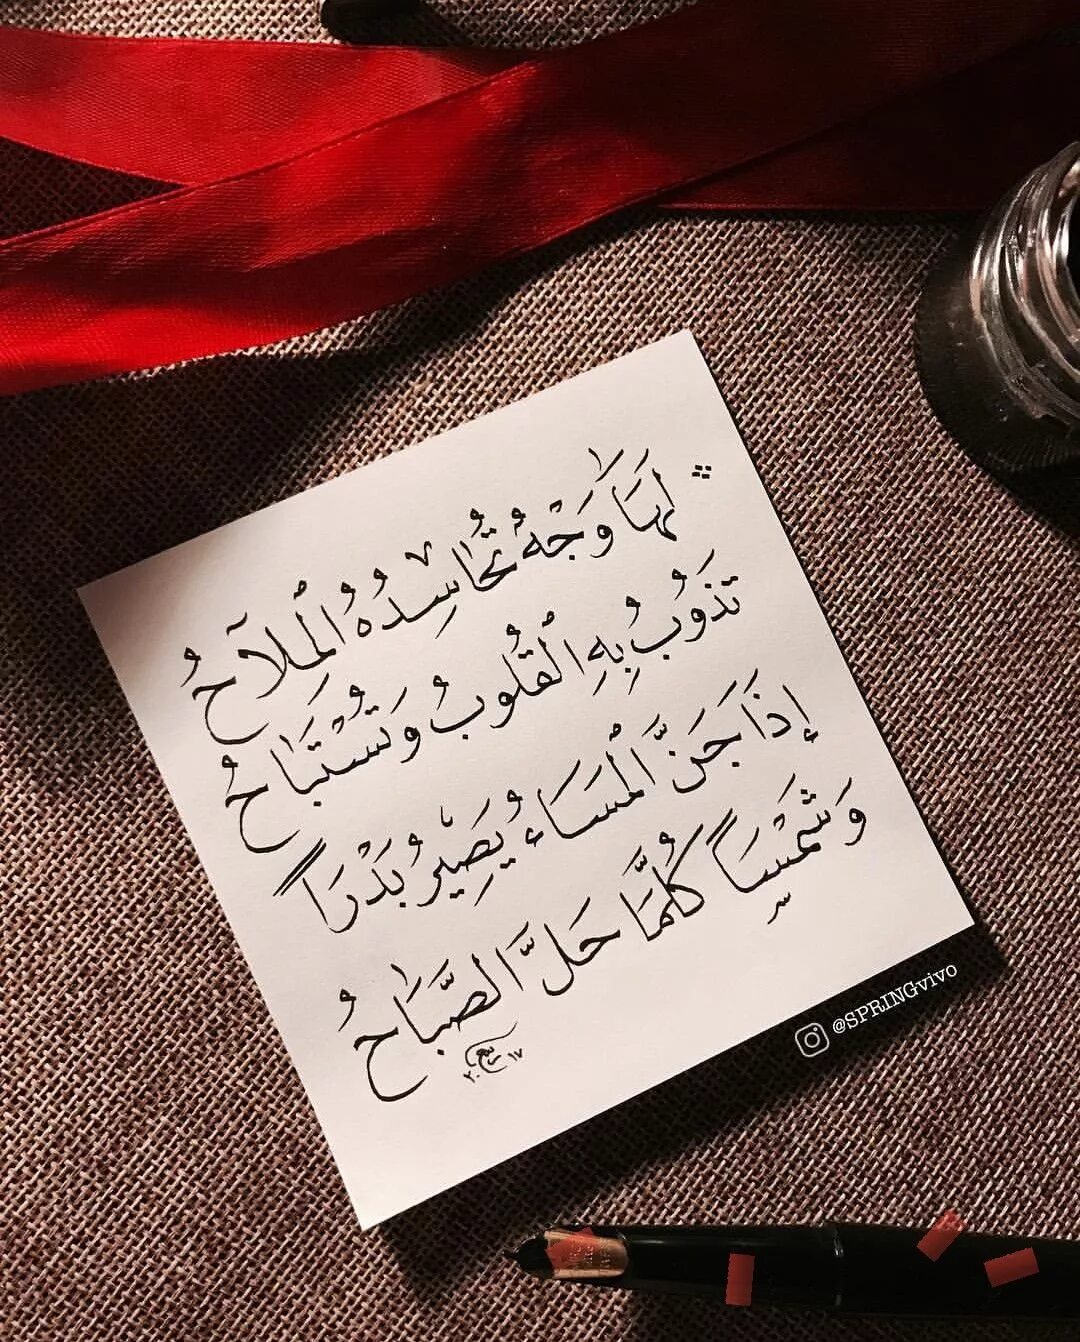 لَهَا وَجْهٌ تُحَاسِدُهُ الْمِلَاحُ
تَذُوبُ بِهِ الْقُلُوبُ وَتُسْتَبَاحُ
إِذَا جَنَّ الْمَسَاءُ يَصِيرُ بَدْرًا
وَشَمْسًا كُلَّمَا حَلَّ الصَّبَاحُ
ربيع ٢٠١٧
@SPRINGvivo